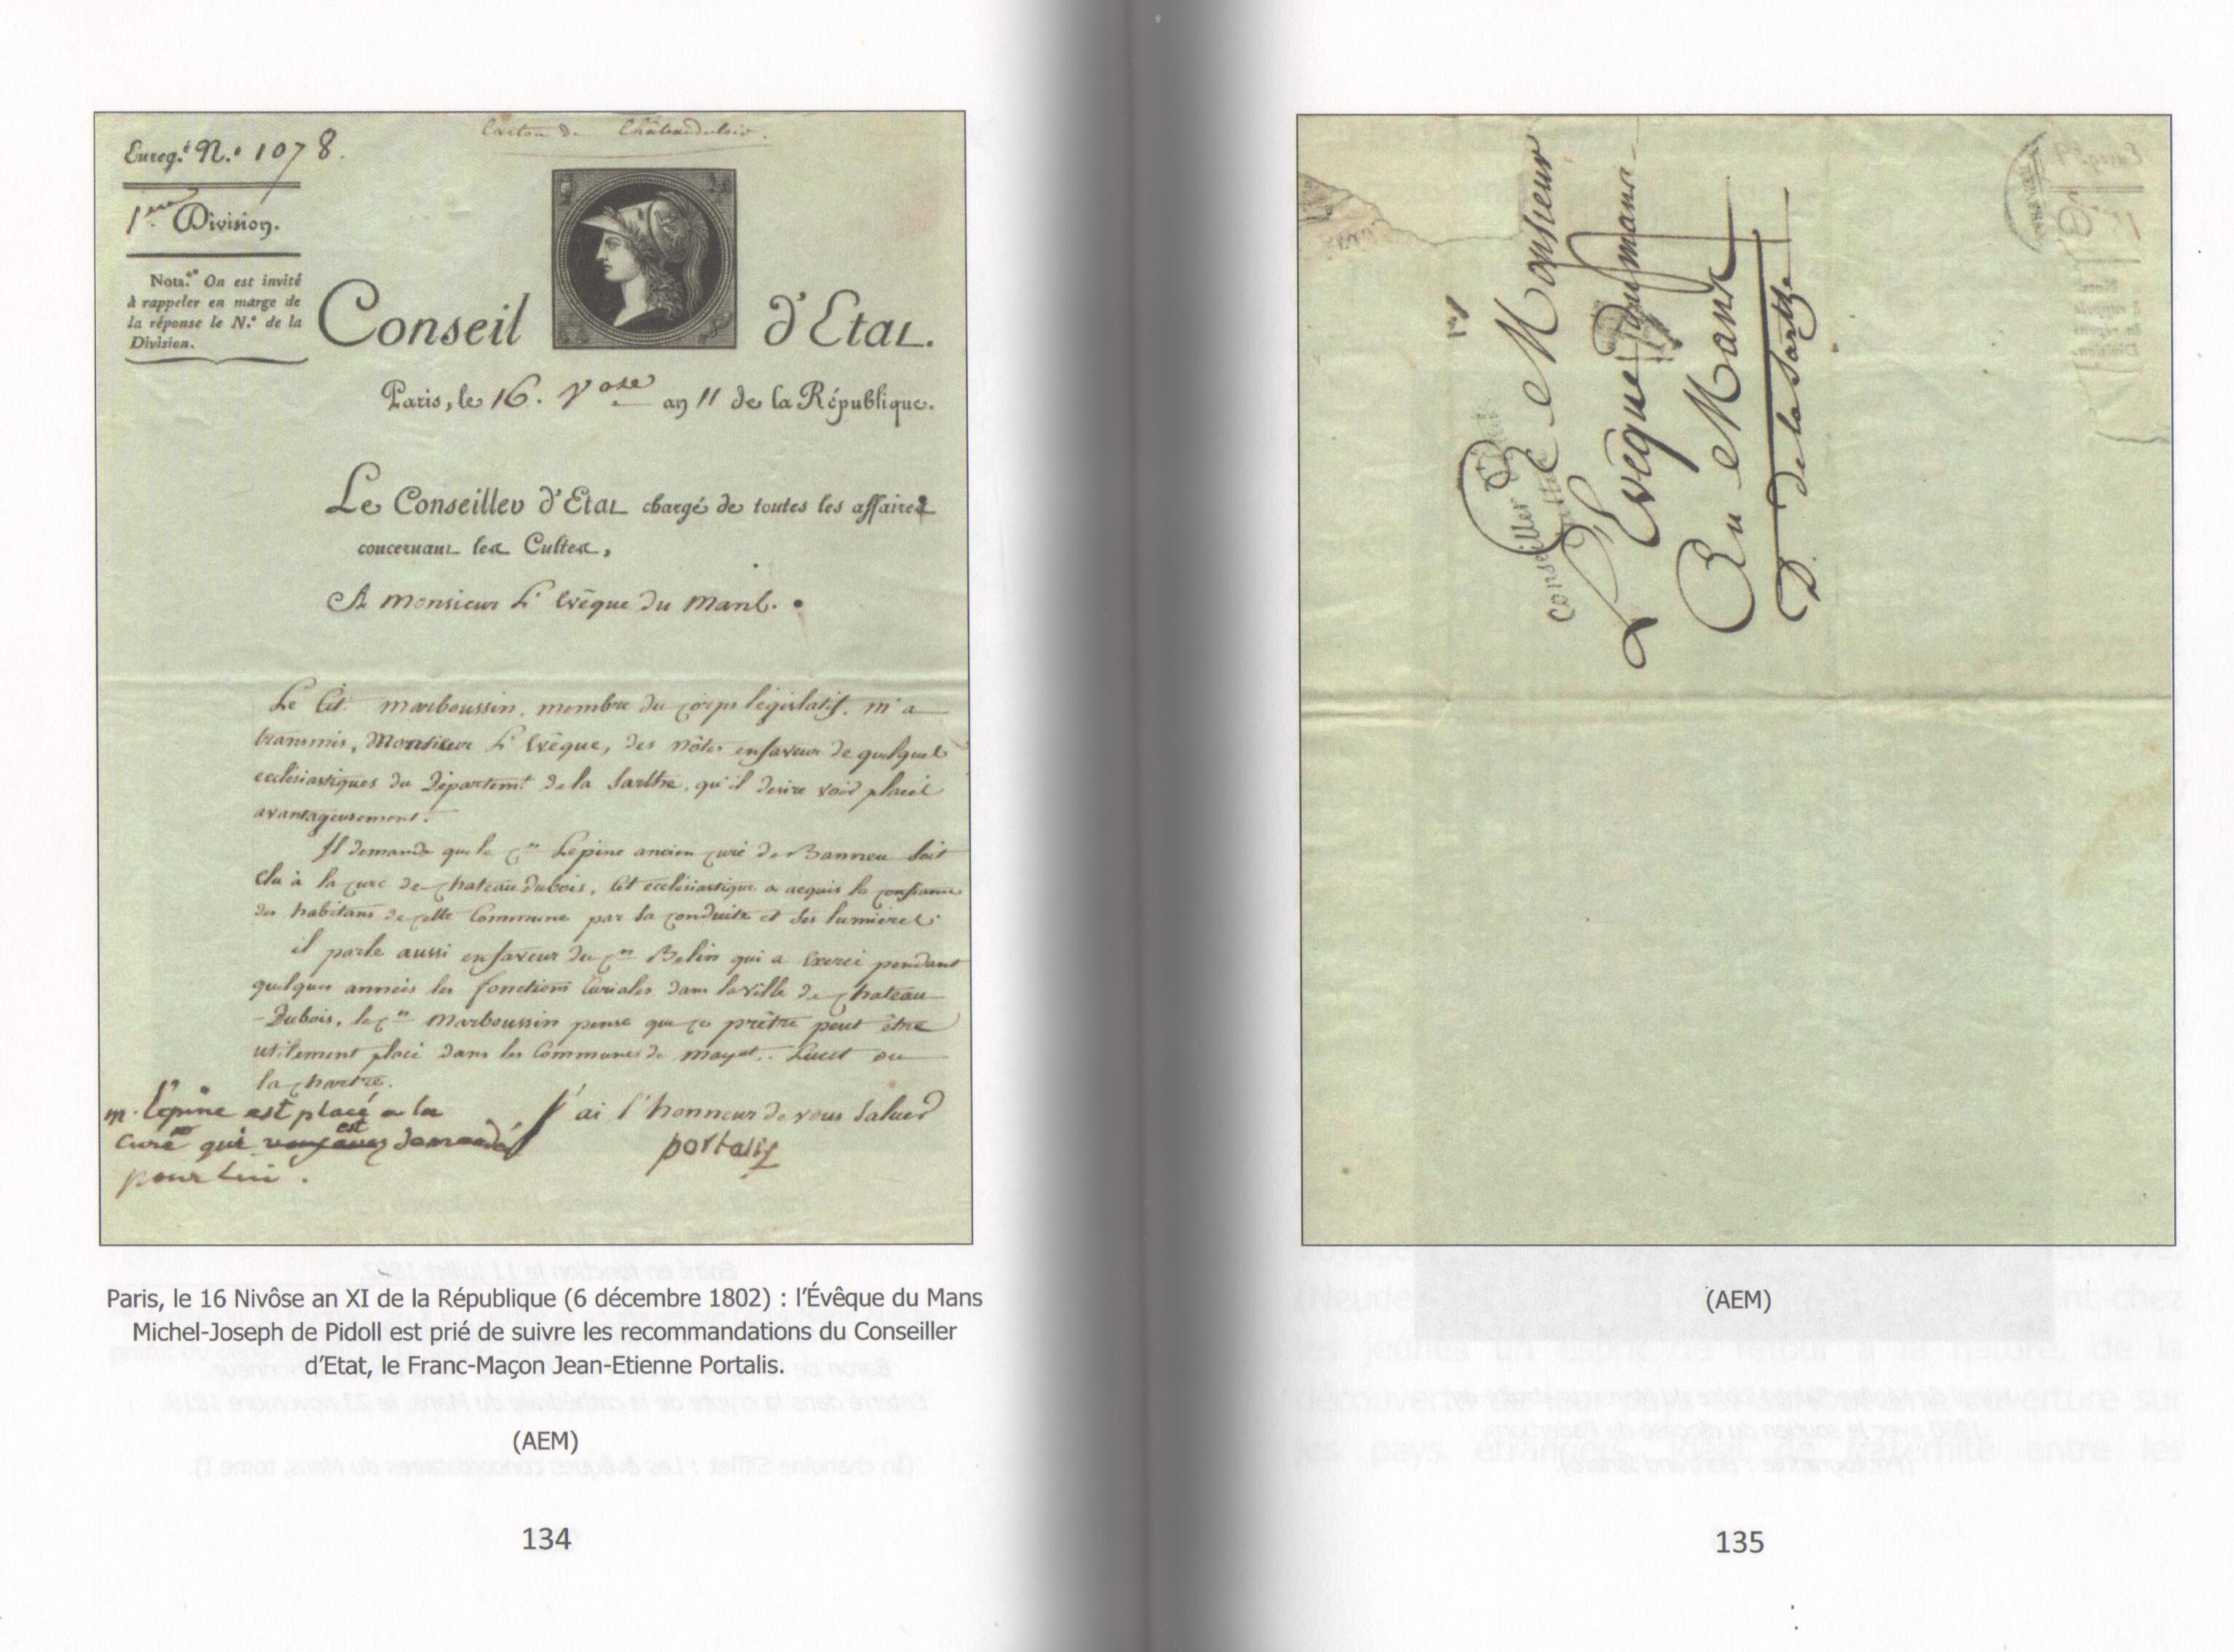 Canton de Châteauduloir.
Enreg.t N.o 1078.
1ère Division.
Nota. On est invité
à rappeler en marge de
la réponse le N.o de la
Division.
Conseil d'Etat.
Paris, le 16. Vose an 11 de la République.
Le Conseiller d'Etat chargé de toutes les affaires
concernant les Cultes,
A monsieur L'évêque du Mans.
Le Cit. marboussin, membre du corps législatif, m'a
transmis, Monsieur L'évêque, des nôtes en faveur de quelques
ecclésiastiques du Départemt de la Sarthe, qu'il desire voir placés
avantageusement.
Il demande que le Cen Lepine ancien curé de Banneu soit
élu à la cure de chateaudubois, Cet ecclésiastique a acquis la confiance
des habitans de cette Commune par sa conduite et ses lumieres.
il parle aussi en faveur du Cen Belin qui a exercé pendant
quelques années les fonctions Curiales dans la ville de chateau
-Dubois, le Cen Marboussin pense que ce prêtre peut être
utilement placé dans les Communes de mayet. Lucet ou
la chartre.
J'ai l'honneur de vous saluer
portalis
m. l'epine est placé a la
cure que vous avez est demandé
pour lui.
Paris, le 16 Nivôse an XI de la République (6 décembre 1802) : l'Évêque du Mans
Michel-Joseph de Pidoll est prié de suivre les recommandations du Conseiller
d'Etat, le Franc-Maçon Jean-Etienne Portalis.
(AEM)
134
A Monsieur
L'Evêque du mans
Au Mans
D. de la Sarthe
Conseiller d'Etat
(AEM)
135